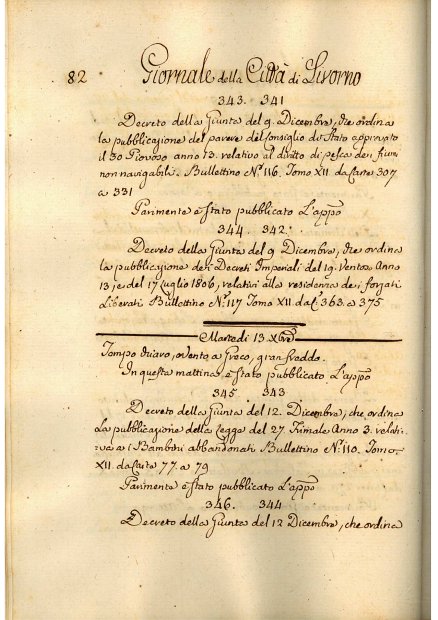 82 Giornale della Città di Livorno
343. 341
Decreto della Giunta del 9. Dicembre, che ordina
la pubblicazione del parere del Consiglio di Stato approvato
il 30 Piovoso anno 13. relativo al diritto di pesca dei fiumi
non navigabili. Bullettino N.° 116. Tomo XII da Carte 307
a 331
Parimente è stato pubblicato L'appo
344. 342.
Decreto della Giunta del 9 Dicembre, che ordina
la pubblicazione dei Decreti Imperiali del 19. Ventoso Anno
13, e del 17 luglio 1806, relativi alla residenza dei forzati
Liberati Bullettino N.° 117 Tomo XII da C. 363. a 375
Martedi 13. Xbre
Tempo chiaro, e Vento a Greco, gran freddo.
In questa mattina è stato pubblicato L'appo
345 343
Decreto della Giunta del 12. Dicembre, che ordina
La pubblicazione della Legge del 27 Frimale Anno 3. relati-
va a i Bambini abbandonati Bullettino N.° 110. Tomo
XII. da Carte 77. a 79
Parimente è stato pubblicato L'appo
346. 344
Decreto della Giunta del 12 Dicembre, che ordina